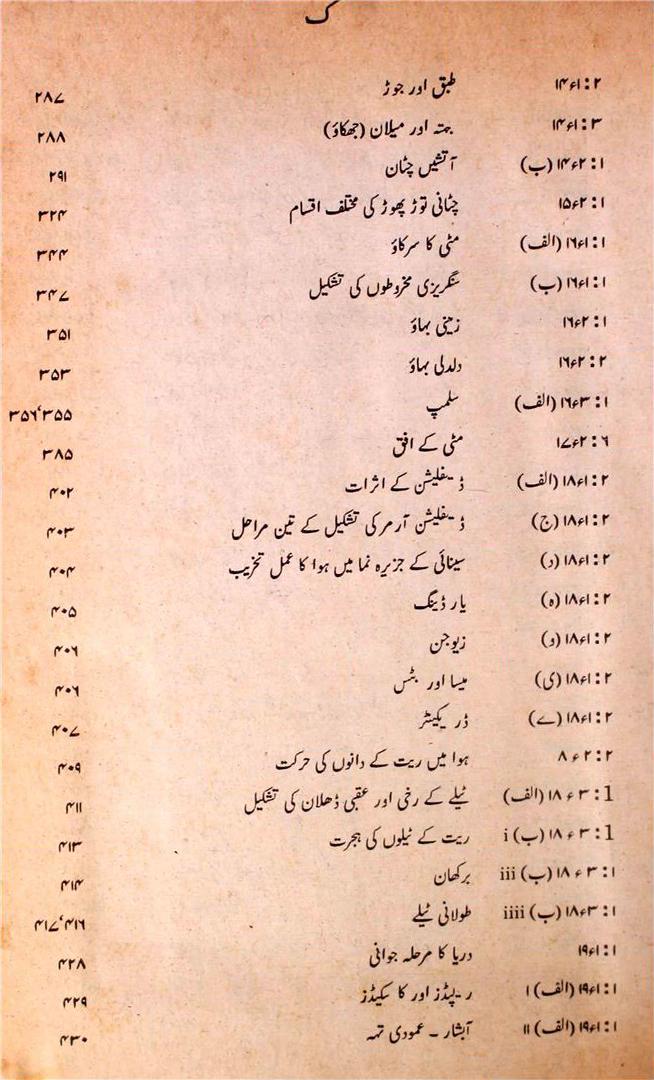 ک
۱۴ء۱:۲ طبق اور جوڑ ۲۸۷
۱۴ء۱:۳ جتہ اور میلان (جھکاؤ) ۲۸۸
۱۴ء۲:۱ (ب) آتشیں چٹان ۲۹۱
۱۵ء۲:۱ چٹانی توڑ پھوڑ کی مختلف اقسام ۳۲۴
۱۶ء۱:۱ (الف) مٹی کا سرکاؤ ۳۴۴
۱۶ء۱:۱ (ب) سنگریزی مخروطوں کی تشکیل ۳۴۷
۱۶ء۲:۱ زمینی بہاؤ ۳۵۱
۱۶ء۲:۲ دلدلی بہاؤ ۳۵۳
۱۶ء۳:۱ (الف) سلمپ ۳۵۶٬۳۵۵
۱۷ء۲:۶ مٹی کے افق ۳۸۵
۱۸ء۱:۲ (الف) ڈیفلیشن کے اثرات ۴۰۲
۱۸ء۱:۲ (ج) ڈیفلیشن آرمر کی تشکیل کے تین مراحل ۴۰۳
۱۸ء۱:۲ (د) سینائی کے جزیرہ نما میں ہوا کا عمل تخریب ۴۰۴
۱۸ء۱:۲ (ہ) یارڈینگ ۴۰۵
۱۸ء۱:۲ (و) زیوجن ۴۰۶
۱۸ء۱:۲ (ی) میسا اور بٹس ۴۰۶
۱۸ء۱:۲ (ے) ڈریکینٹر ۴۰۷
۸ء۲:۲ ہوا میں ریت کے دانوں کی حرکت ۴۰۹
۱۸ء۳:1 (الف) ٹیلے کے رخی اور عقبی ڈھلان کی تشکیل ۴۱۱
۱۸ء۳:1 (ب) i ریت کے ٹیلوں کی ہجرت ۴۱۳
۱۸ء۳:۱ (ب) iii برکھان ۴۱۴
۱۸ء۳:۱ (ب) iiii طولانی ٹیلے ۴۱۷٬۴۱۶
۱۹ء۱:۱ دریا کا مرحلہ جوانی ۴۲۸
۱۹ء۱:۱ (الف) I ریپڈز اور کاسکیڈز ۴۲۹
۱۹ء۱:۱ (الف) II آبشار ۔ عمودی تہہ ۴۳۰